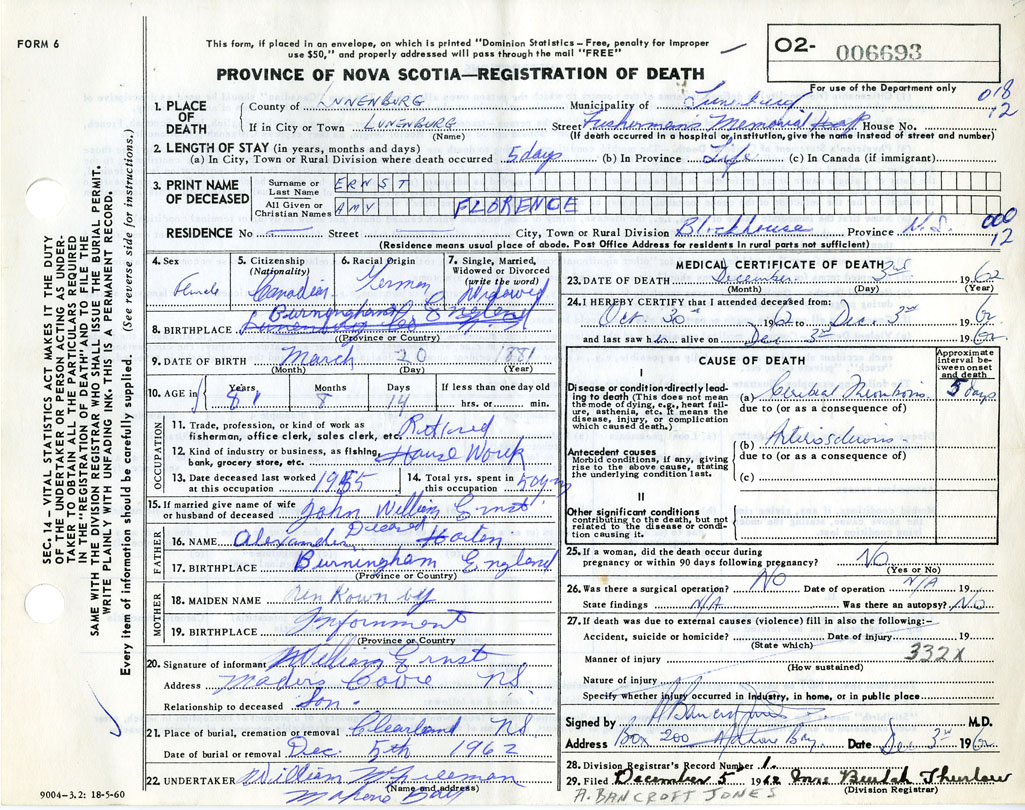 FORM 6
This form, if placed in an envelope, on which is printed "Dominion Statistics – Free, penalty for improper
use $50," and properly addressed will pass through the mail "FREE"
PROVINCE OF NOVA SCOTIA—REGISTRATION OF DEATH
O2- 006693
For use of the Department only
018
12
1. PLACE OF DEATH
County of LUNENBURG Municipality of Lunenburg
If in City or Town LUNENBURG (Name) Street Fishermans Memorial Hosp House No.
(If death occurred in a hospital or institution, give the name instead of street and number)
2. LENGTH OF STAY (in years, months and days)
(a) In City, Town or Rural Division where death occurred 5 days (b) In Province Life (c) In Canada (if immigrant)
3. PRINT NAME OF DECEASED
Surname or Last Name ERNST
All Given or Christian Names AMY FLORENCE
RESIDENCE No Street City, Town or Rural Division Blockhouse Province N.S.
000
12
(Residence means usual place of abode. Post Office Address for residents in rural parts not sufficient)
4. Sex Female
5. Citizenship (Nationality) Canadian
6. Racial Origin German
7. Single, Married, Widowed or Divorced (write the word) Widowed
8. BIRTHPLACE Burningham England
(Province or Country)
9. DATE OF BIRTH March 20 1881
(Month) (Day) (Year)
10. AGE in Years 81 Months 8 Days 14 If less than one day old hrs. or min.
OCCUPATION
11. Trade, profession, or kind of work as fisherman, office clerk, sales clerk, etc. Retired
12. Kind of industry or business, as fishing, bank, grocery store, etc. House Work
13. Date deceased last worked at this occupation 1955
14. Total yrs. spent in this occupation 50 yrs
15. If married give name of wife or husband of deceased John William Ernst
Deceased
FATHER
16. NAME Alexander Horton
17. BIRTHPLACE Burningham England
(Province or Country)
MOTHER
18. MAIDEN NAME Un Kown by
19. BIRTHPLACE Informment
(Province or Country)
20. Signature of informant William Ernst
Address Maders Cove NS
Relationship to deceased Son.
21. Place of burial, cremation or removal Clearland NS
Date of burial or removal Dec. 5th 1962
22. UNDERTAKER William
(Name and address)
Mahone Bay
9004-3.2: 18-5-60
SEC. 14 – VITAL STATISTICS ACT MAKES IT THE DUTY
OF THE UNDERTAKER OR PERSON ACTING AS UNDER-
TAKER TO OBTAIN ALL THE PARTICULARS REQUIRED
IN THE "REGISTRATION OF DEATH" AND TO FILE THE
SAME WITH THE DIVISION REGISTRAR WHO SHALL ISSUE THE BURIAL PERMIT.
WRITE PLAINLY WITH UNFADING INK. THIS IS A PERMANENT RECORD.
Every item of information should be carefully supplied. (See reverse side for instructions.)
MEDICAL CERTIFICATE OF DEATH
23. DATE OF DEATH December 3rd 1962
(Month) (Day) (Year)
24. I HEREBY CERTIFY that I attended deceased from:
Oct 30th 1962 to Dec 3rd 1962
and last saw her alive on Dec 3rd 1962
CAUSE OF DEATH
Approximate interval between onset and death
I
Disease or condition directly leading to death (This does not mean the mode of dying, e.g., heart failure, asthenia, etc. It means the disease, injury, or complication which caused death.)
(a) Cerebral Thrombosis 5 days
due to (or as a consequence of)
Antecedent causes
Morbid conditions, if any, giving rise to the above cause, stating the underlying condition last.
(b) Arteriosclerosis
due to (or as a consequence of)
(c)
II
Other significant conditions
contributing to the death, but not related to the disease or condition causing it.
25. If a woman, did the death occur during pregnancy or within 90 days following pregnancy? NO
(Yes or No)
26. Was there a surgical operation? NO Date of operation N/A 19
State findings N/A Was there an autopsy? No
27. If death was due to external causes (violence) fill in also the following:–
Accident, suicide or homicide? Date of injury 19
(State which)
Manner of injury 332X
(How sustained)
Nature of injury
Specify whether injury occurred in industry, in home, or in public place
Signed by A Bancroft Jones M.D.
Address Box 200 Mahone Bay Date Dec 3rd 1962
28. Division Registrar's Record Number 1.
29. Filed December 5 1962 Mrs Beulah Thurlow
(Division Registrar)
A. BANCROFT JONES